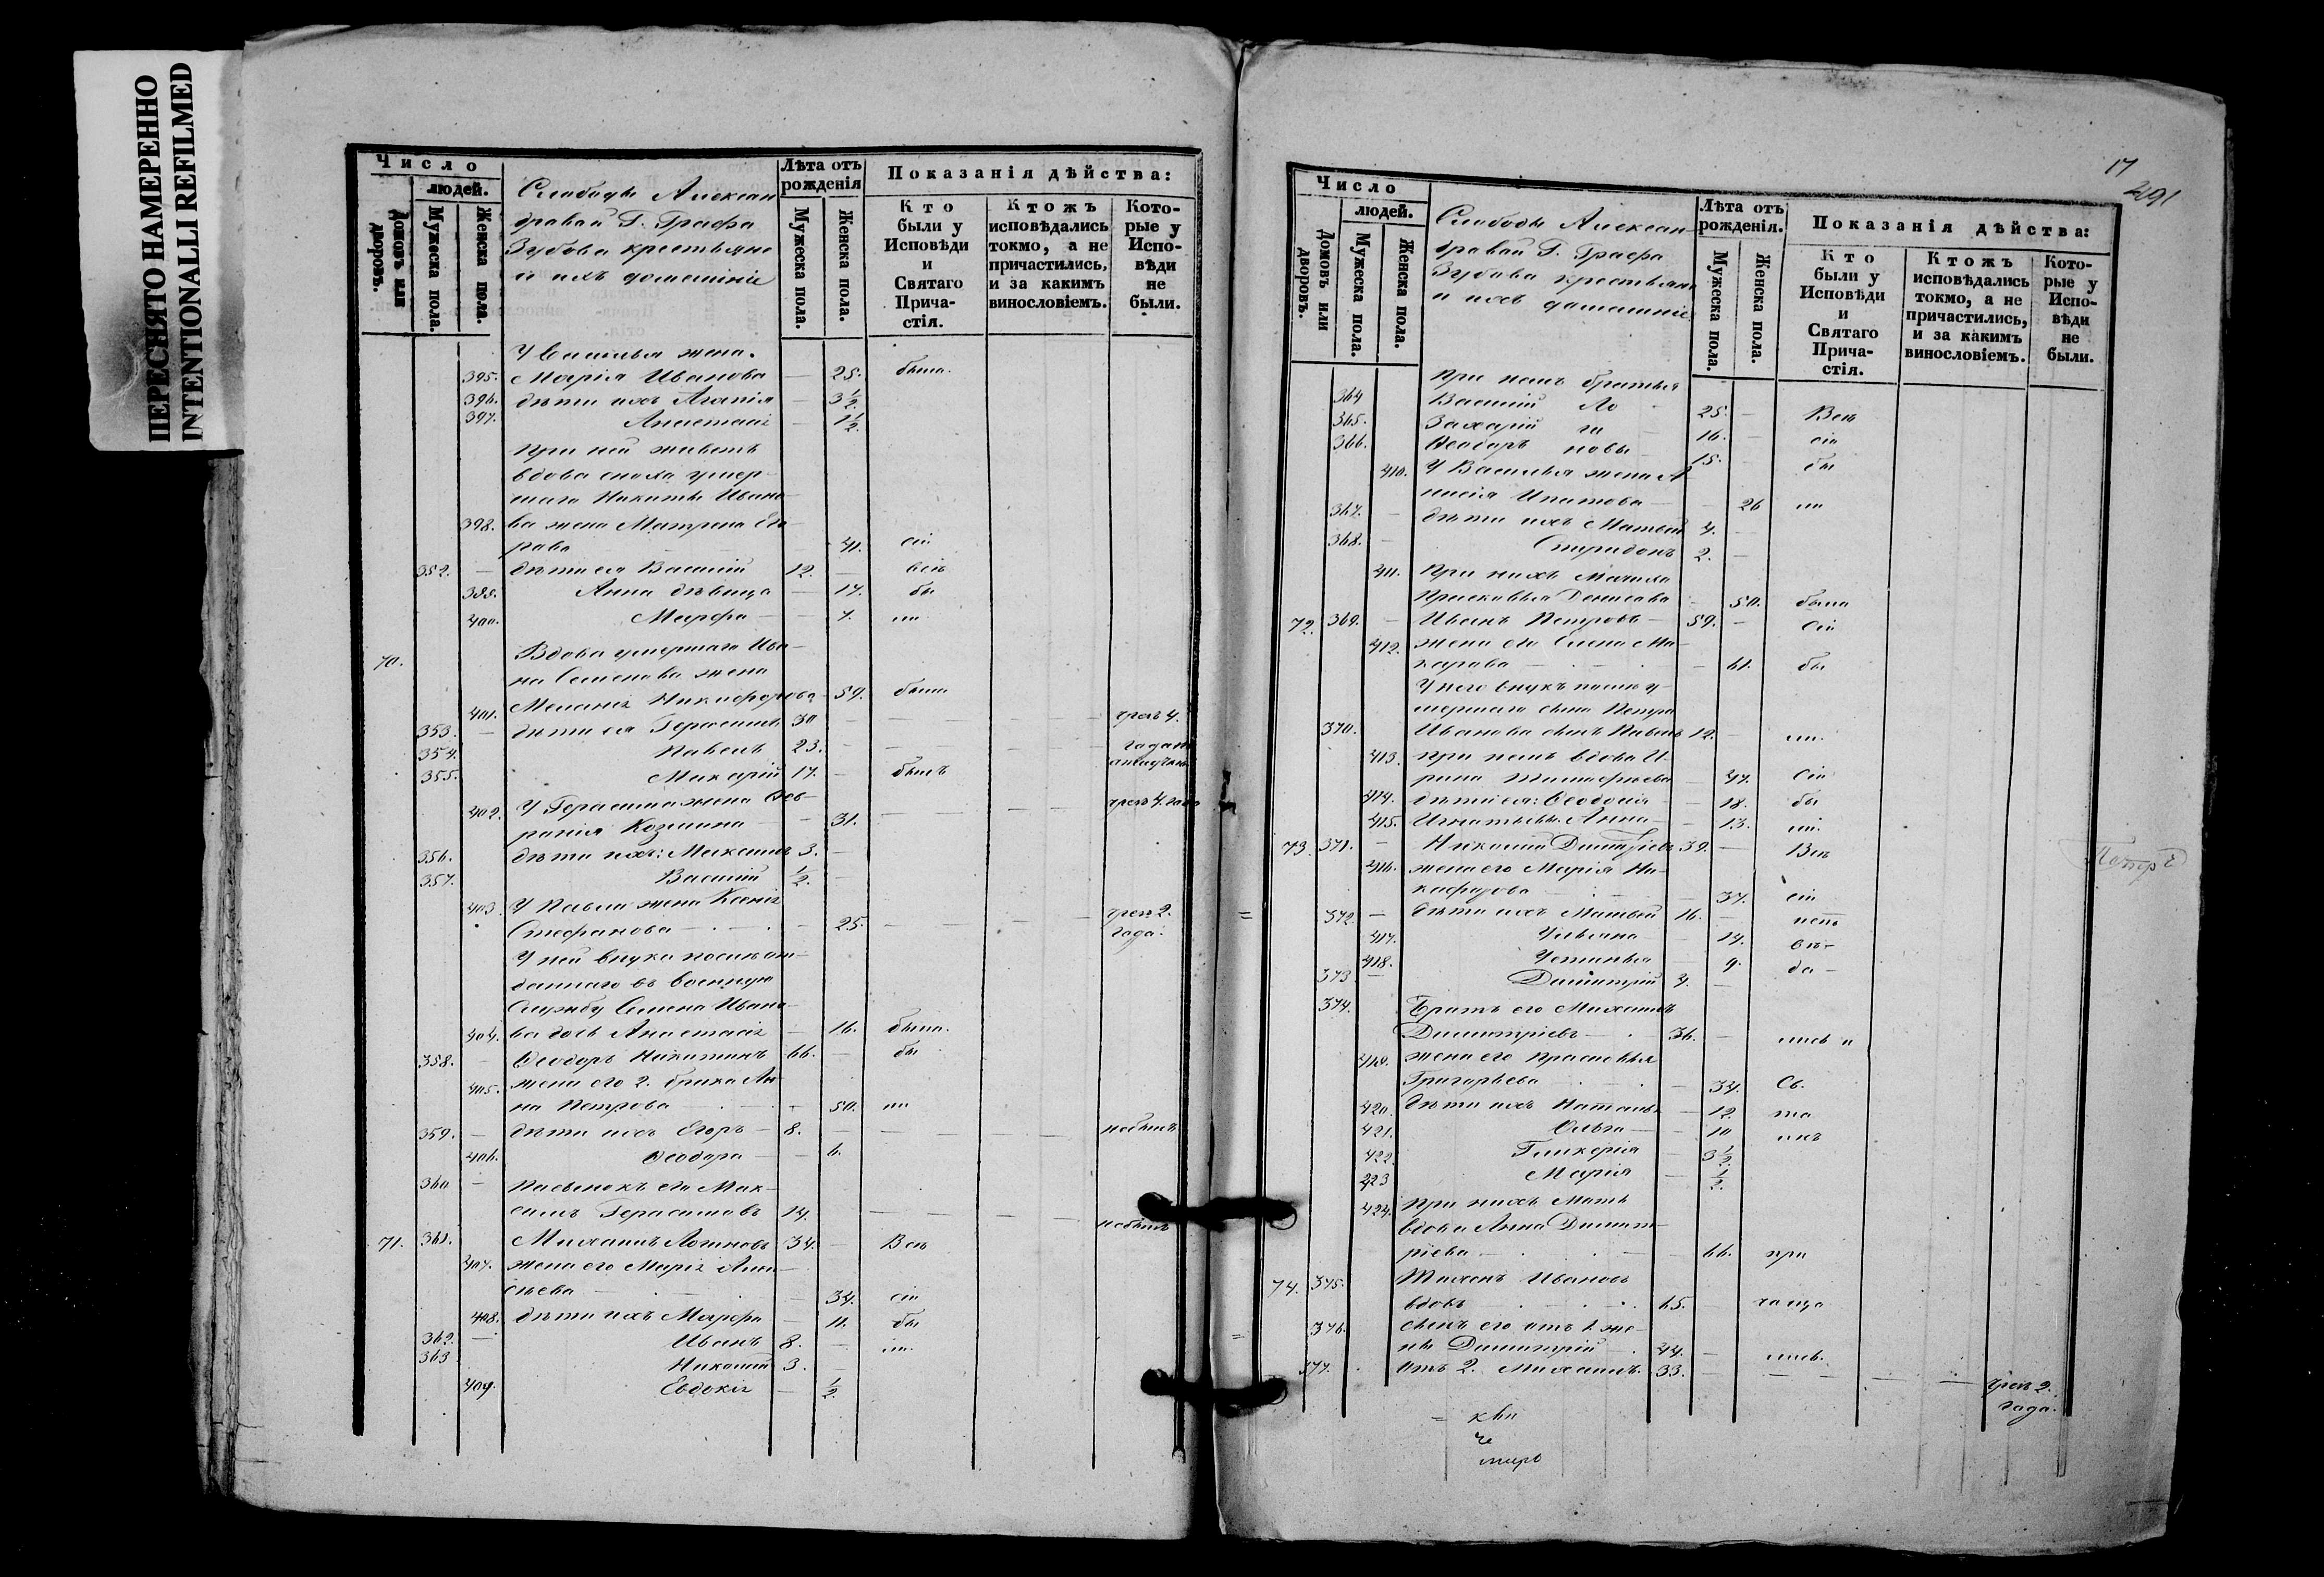 ПЕРЕСНЯТО НАМЕРЕННО
INTENTIONALLI REFILMED
Число
людей.
Домовъ или дворовъ.
Мужеска пола.
Женска пола.
Слободы Алексан
дровой Г. Графа
Зубова крестьяне
и ихъ домашніе
Лѣта отъ рожденія
Мужеска пола.
Женска пола.
Показанія дѣйства:
Кто были у Исповѣди и Святаго Прича-стія.
Ктожъ исповѣдались токмо, а не причастились, и за какимъ винословіемъ.
Кото-рые у Испо-вѣди не были.
У Василья жена
395. Марія Иванова — 25. была.
396. дѣти ихъ Агапія — 3 1/2
397. Анастасія — 1 1/2
при ней живетъ
вдова сноха умер-
шаго Никиты Ивано-
398. ва жена Матрена
41.
352. — дѣти ея Василій 12. — всѣ
399. Анна дѣвица — 17. бы
400. Марфа — 7. ли
70. Вдова умершаго Ива-
на Семенова жена
401. Меланія Никифорова 59. была
353. — дѣти ея Герасимъ 30 — — — чрезъ 4.
354. Павелъ 23. — —
355. Макарій 17. — былъ
402. У Герасима жена Фев-
ронія Козмина — 31. — — — чрезъ 4. года
356. дѣти ихъ: Максимъ 3. —
357. Василій 1/2. —
403. У Павла жена Ксенія
Стефанова — 25. — — — чрез 2. года.
У ней внука послѣ от-
даннаго въ военную
службу Семена Ивано-
404. ва дочь Анастасія — 16. была.
358. — Ѳеодоръ Никитинъ 66. — бы
405. жена его 2. брака Ан-
на Петрова — 50. ли
359. — дѣти ихъ Егоръ — 8. — — — небылъ
406. Ѳеодора — 6.
360 — пасынокъ его Мак-
симъ Герасимовъ 14. — — — небылъ
71. 361. Михаилъ Логиновъ 34. — Всѣ
407. жена его Марія
34. сіи
408. дѣти ихъ Марфа — 11. бы
362. — Иванъ 8. — ли.
363. Николай 3. —
409. Евдокія — 1/2.
17
491
Число
людей.
Домовъ или дворовъ.
Мужеска пола.
Женска пола.
Слободы Алексан-
дровой Г. Графа
Зубова крестьяне
и ихъ домашніе
Лѣта отъ рожденія.
Мужеска пола.
Женска пола.
Показанія дѣйства:
Кто были у Исповѣди и Святаго Прича-стія.
Ктожъ исповѣдались токмо, а не причастились, и за какимъ винословіемъ.
Кото-рые у Испо-вѣди не были.
При немъ братья
364 Василій Ло 25. — Всѣ
365. Захарій ги — 16. — сіи
366. Ѳеодоръ новы — 15. бы
410. У Василья жена
Ипатова — 26 ли
367. — дѣти ихъ Матвей 4. —
368. — Спиридонъ 2. —
411. При нихъ Мачиха
Прасковья Денисова — 50. была
72. 369. — Иванъ Петровъ — 59. — Сіи
412. жена его Елена Ма-
карова — 61. бы
У него внукъ послѣ у-
мершаго сына Петра
370. Иванова сынъ Павелъ 12. — ли.
413. при немъ вдова И-
рина Тимофеева — 47. Сіи
414. дѣти ея: Ѳеодосія — 18. бы
415. Игнатьевы Анна — 13. ли.
73. 371. — Николай Димитріевъ 39. — Всѣ
416. жена его Марія Ни-
кифорова — 37. сіи
372. — дѣти ихъ Матвей 16. —
417. Ульяна — 14.
418. Устинья — 9. да-
373 — Димитрій 4. —
374. Братъ его Михаилъ
Димитріевъ — 36. — лись и
419. жена его Прасковья
Григорьева — 34. Св.
420. дѣти ихъ Наталья — 12. та
421. Ольга — 10 инъ
422. Гликерія — 3 1/2
423 Марія — 1/2.
424. При нихъ Мать
вдова Анна Димит-
ріева — 66. при
74. 375. Тихонъ Ивановъ
вдовъ — 65. — чаща
376. сынъ его отъ 1. же-
ны Димитрій 44. — лись.
377. отъ 2. Михаилъ. 33. — — — чрезъ 2. года.
Петръ